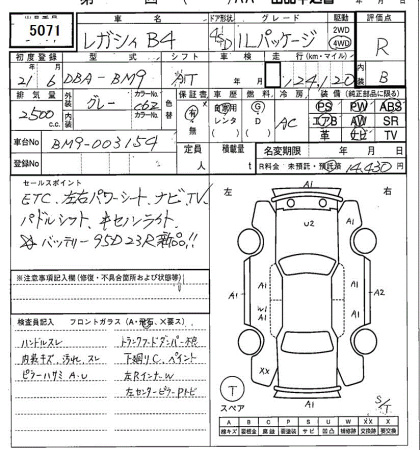 5071
車名
ドア形状
グレード
駆動
評価点
レガシィ B4
4D
ILパッケージ
2WD
4WD
R
初度登録
型式
シフト
車検
走行(km・マイル)
内装
21/6
DBA-BM9
AIT
年 月
B
排気量
外装
カラーNo.
色替
保証書
車歴
燃料
冷房
装備(純正部品に限る)
2500
c.c.
グレー
C6Z
有
無
自家用
レンタ
G
D
AC
PS PW ABS
エアB AW SR
革 ナビ TV
車台No
BM9-003154
定員
人
積載量
t
名変期限
年 月 日
登録No
R料金 未預託・預託済
14,430円
セールスポイント
ETC、左右パワーシート、ナビ、TV、
パドルシフト、キセノンライト
バッテリー 95D23R 新品!!
左
右
※注意事項記入欄(修復・不具合箇所および状態等)
検査員記入 フロントガラス(A・飛石、×要ス)
ハンドルスレ
トランクフードダンパー不良
内装キズ、汚れ、スレ
下廻りC、ペイント
ピラーハサミA.U
左Rインナー W
左センターピラーPトビ
A1
U2
A1
A1
A1
A1
W1
A1
A2
XX
A1
T
スペア
S/T
A B C P S U W X XX
線キズ 要鈑金 腐蝕 要塗装 サビ 凹凸 補修跡 交換跡 要交換